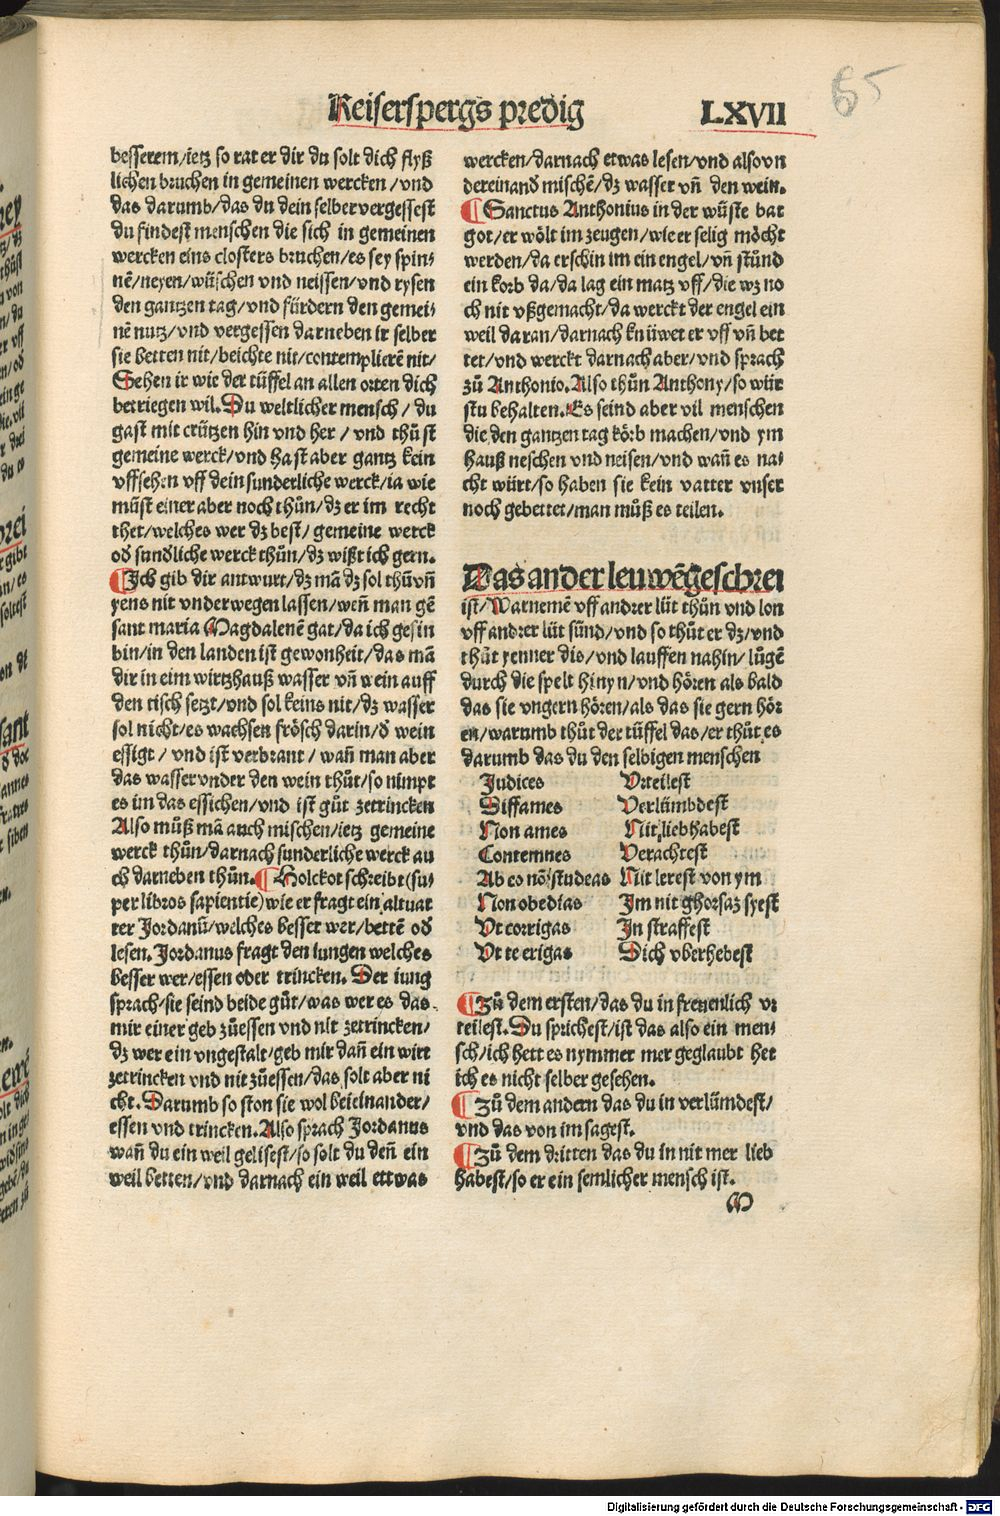 Keiserspergs predig LXVII
65
besserem/ietz so rat er dir du solt dich flyß
lichen bruchen in gemeinen wercken/vnd
das darumb/das du dein selber vergessest
du findest menschen die sich in gemeinen
wercken eins closters bruchen/es sey spin⸗
nē/neyen/wüschen vnd neissen/vnd rysen
den gantzen tag/vnd fürdern den gemei⸗
nē nutz/vnd vergessen darneben ir selber
sie betten nit/beichtē nit/contemplierē nit/
Sehen ir wie der tüffel an allen orten dich
betriegen wil. Du weltlicher mensch/du
gast mit crützen hin vnd her/vnd thůst
gemeine werck/vnd hast aber gantz kein
vffsehen vff dein sunderliche werck/ia wie
můst einer aber noch thůn/dz er im recht
thet/welches wer dz best/gemeine werck
od sundliche werck thůn/dz wißt ich gern.
¶Ich gib dir antwurt/dz mā dz sol thůvn̄
yens nit vnderwegen lassen/wen̄ man gē
sant maria Magdalenē gat/da ich gesin
bin/in den landen ist gewonheit/das mā
dir in eim wirtzhauß wasser vn̄ wein auff
den tisch setzt/vnd sol keins nit/dz wasser
sol nicht/es wachsen frösch darin/d wein
essigt/vnd ist verbrant/wan̄ man aber
das wasser vnder den wein thůt/so nimpt
es im das essichen/vnd ist gůt zetrincken
Also můß mā auch mischen/ietz gemeine
werck thůn/darnach sunderliche werck au
ch darneben thůn. ¶Holckot schreibt(su⸗
per libros sapientie)wie er fragt ein altuat
ter Jordanū/welches besser wer/bettē od
lesen. Jordanus fragt den iungen welches
besser wer/essen oder trincken. Der iung
sprach/sie seind beide gůt/was wer es das
mir einer geb zůessen vnd nit zetrincken/
dz wer ein vngestalt/geb mir dan̄ ein wirt
zetrincken vnd nit zůessen/das solt aber ni
cht. Darumb so ston sie wol beieinander/
essen vnd trincken. Also sprach Jordanus
wan̄ du ein weil gelisest/so solt du den̄ ein
weil betten/vnd darnach ein weil ettwas
wercken/darnach etwas lesen/vnd also vn
dereinand mischē/dz wasser vn̄ den wein.
¶Sanctus Anthonius in der wůste bat
got/er wölt im zeugen/wie er selig möcht
werden/da erschin im ein engel/vn̄ stůnd
ein korb da/da lag ein matz vff/die wz no
ch nit vßgemacht/da werckt der engel ein
weil daran/darnach knüwet er vff vn̄ bet
tet/vnd werckt darnach aber/vnd sprach
zů Anthonio. Also thůn Anthony/so wür
stu behalten. Es seind aber vil menschen
die den gantzen tag körb machen/vnd ym
hauß neschen vnd neisen/vnd wan̄ es na⸗
cht würt/so haben sie kein vatter vnser
noch gebettet/man můß es teilen.
Das ander leuwēgeschrei
ist/Warnemē vff andrer lüt thůn vnd lon
vff andrer lüt sünd/vnd so thůt er dz/vnd
thůt yenner dis/vnd lauffen nahin/lůgē
durch die spelt hinyn/vnd hören als bald
das sie vngern hören/als das sie gern hör
en/warumb thůt der tüffel das/er thůt es
darumb das du den selbigen menschen
Judices Vrteilest
Diffames Verlümbdest
Non ames Nit liebhabest
Contemnes Verachtest
Ab eo nō studeas Nit lerest von ym
Non obedias Jm nit ghorsaz syest
Vt corrigas Jn straffest
Vt te erigas Dich vberhebest
¶Zů dem ersten/das du in freuenlich vr
teilest. Du sprichest/ist das also ein men⸗
sch/ich hett es nymmer mer geglaubt het
ich es nicht selber gesehen.
¶Zů dem andern das du in verlümdest/
vnd das von im sagest.
¶Zů dem dritten das du in nit mer lieb
habest/so er ein semlicher mensch ist.
M
Digitalisierung gefördert durch die Deutsche Forschungsgemeinschaft - DFG